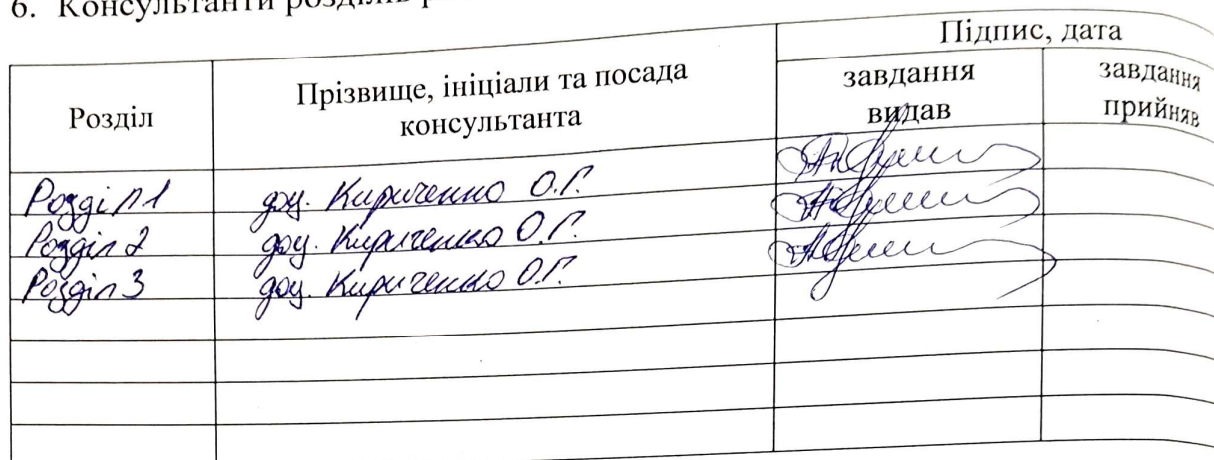 6. Консультанти розділів
Підпис, дата
Розділ
Прізвище, ініціали та посада
консультанта
завдання
видав
завдання
прийняв
Розділ 1 доц. Кириченко О.Г.
Розділ 2 доц. Кириченко О.Г.
Розділ 3 доц. Кириченко О.Г.